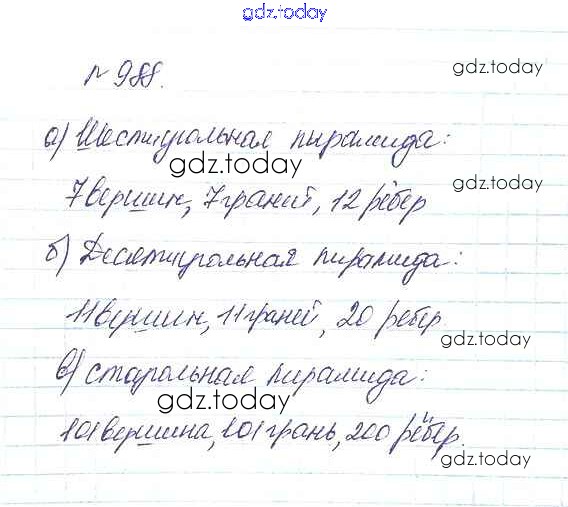 gdz.today
№ 988.
gdz.today
а) Шестиугольная пирамида:
gdz.today
7 вершин, 7 граней, 12 рёбер
gdz.today
б) Десятиугольная пирамида:
11 вершин, 11 граней, 20 рёбер
gdz.today
в) стоугольная пирамида:
gdz.today
101 вершина, 101 грань, 200 рёбер.
gdz.today